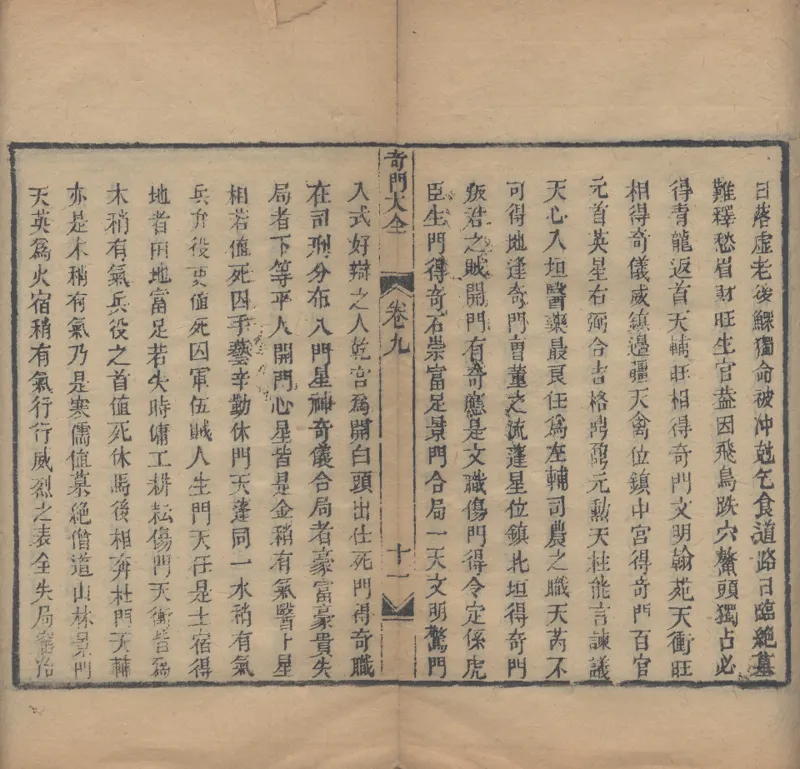 日落虛老後鰥獨命被沖尅乞食道路日臨絕墓
難釋愁眉財旺生官蓋因飛鳥跌穴鰲頭獨占必
得青龍返首天輔旺相得奇門文明翰苑天衝旺
相得奇儀威鎮邊疆天禽位鎮中宮得奇門百官
元首英星右弼合吉格鴻鵠元勲天柱能言諫議
天心入垣醫藥最良任爲左輔司農之職天芮不
可得地逢奇門曹董之流蓬星位鎮北垣得奇門
叛君之賊開門有奇應是文職傷門得令定係虎
臣生門得奇石崇富足景門合局一天文明驚門
奇門大全
卷九
十一
入式好辯之人乾宮爲開白頭出仕死門得奇職
在司刑分布八門星神奇儀合局者豪富豪貴失
局者下等平人開門心星皆是金稍有氣醫卜星
相若值死囚手藝辛勤休門天蓬同一水稍有氣
兵弁役吏值死囚軍伍賊人生門天任是土宿得
地者田地富足若失時傭工耕耘傷門天衝皆爲
木稍有氣兵役之首值死休馬後相奔杜門天輔
亦是木稍有氣乃是寒儒值墓絕僧道山林景門
天英爲火宿稍有氣行行威烈之表全失局窰冶